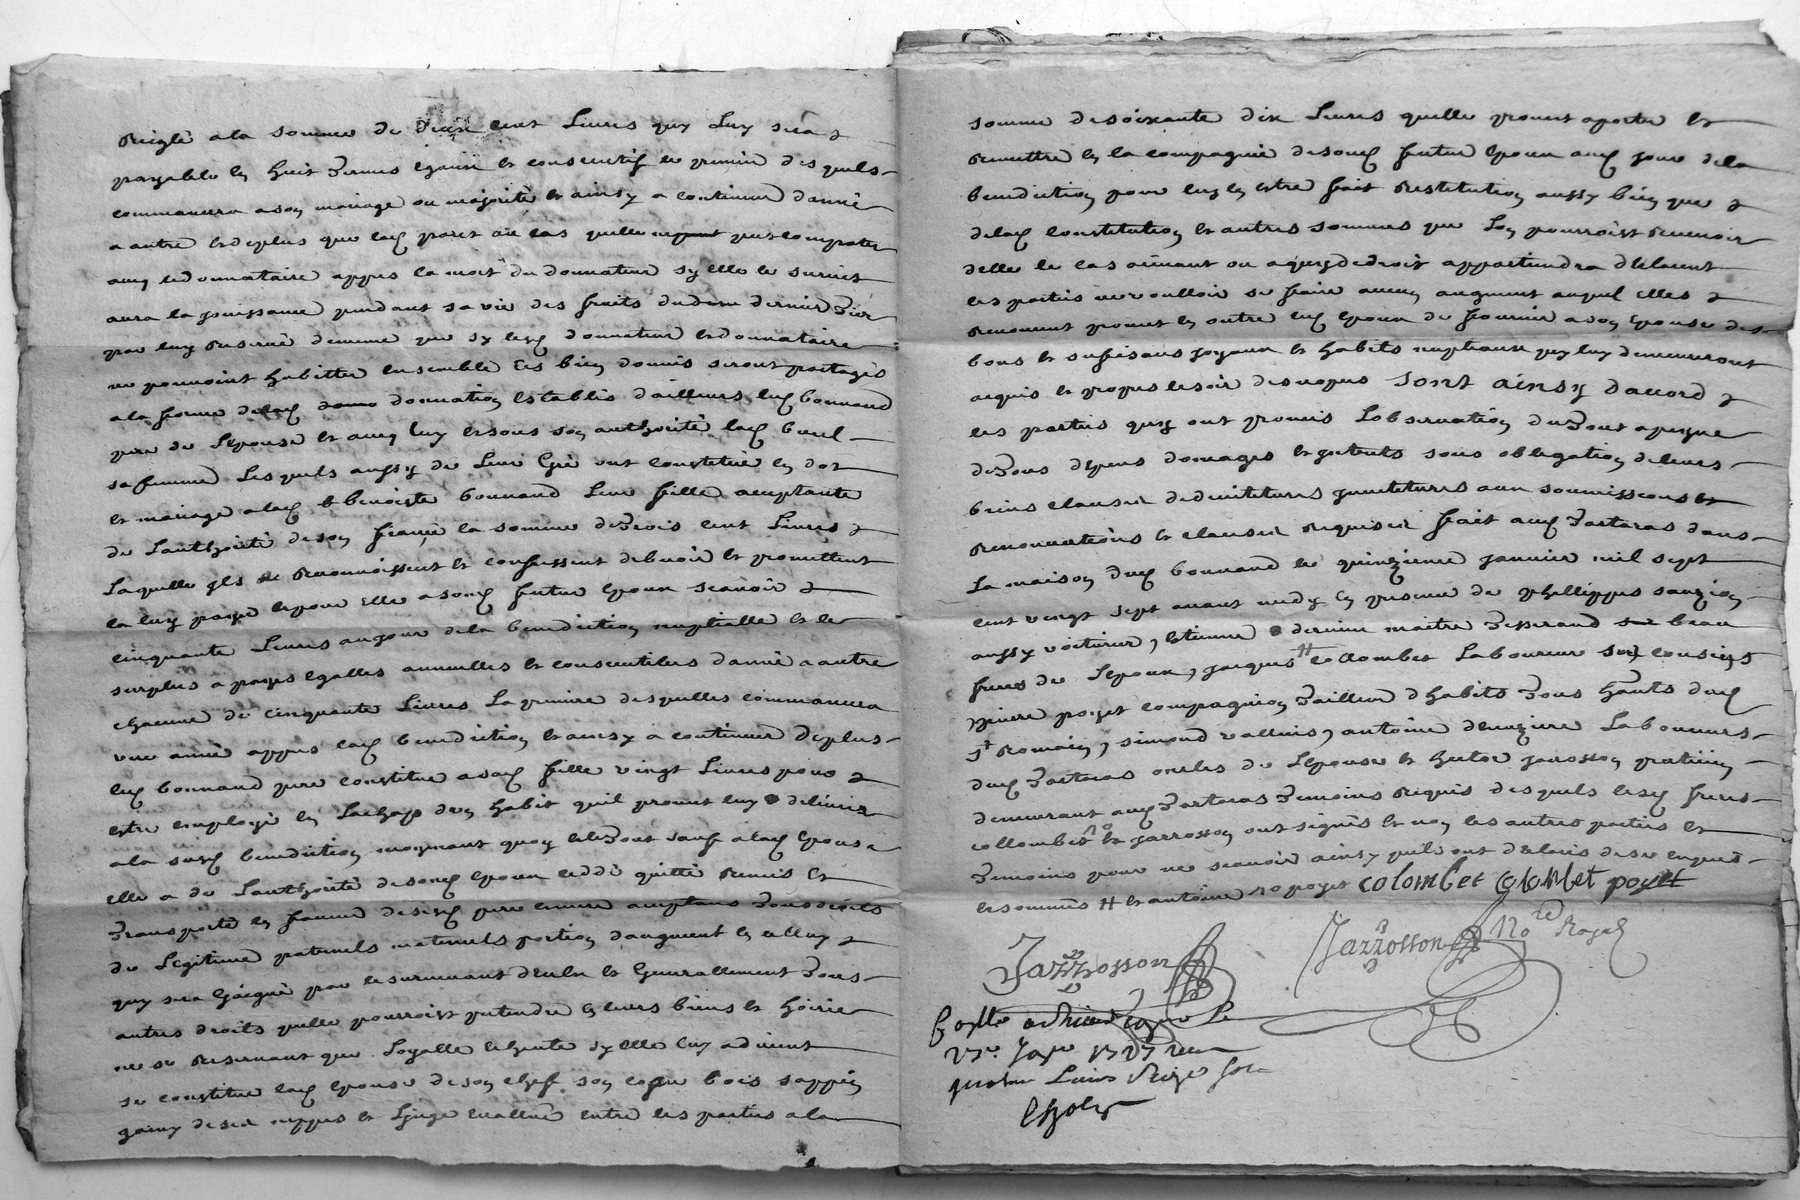 Reiglé a la somme de deux cent Livres quy Luy sera
payable en huit termes egaux et consecutifs le premier desquels
commancera a son mariage ou majorité et ainsy a continuer d'année
a autre et deplus que lad. au cas quelle
avec le donnataire appres la mort du donnateur sy elle le survit
aura la jouissance pendant sa vie des fruits dud. dernier
par luy reservé dememe que sy lesd. donnateur et donnataire
ne pouvoint habitter ensemble les biens donnés seront partagés
a la forme de lad. donnation establis d'ailleurs led. bonnand
pere de L'epouse et avec luy et sous son authorité lad.
sa femme Lesquels aussy de Leur Gré ont constitué en dot
et mariage a lad. benoiste bonnand Leur fille acceptante
de L'authorité de son fiancé la somme de trois cent Livres
Laquelle ils reconnoissent et confessent debvoir et promettent
la luy payer et pour Elle a sond. futur epoux scavoir
cinquante Livres au jour de la benediction nuptialle et le
surplus a payes egalles annuelles et consecutives d'année a autre
chacune de cinquante Livres La premiere desquelles commancera
une année appres lad. benediction et ainsy a continuer deplus
led. bonnand pere constitue a sad. fille vingt Livres pour
estre employé en Lachapt d'un habit quil promet luy delivrer
a la susd. benediction moyenant quoy et le tout sauf a lad. epouse
elle a de L'authorité de sond. epoux ceddé quitté remis et
transporté en faveur de sesd. pere et mere acceptans tous droits
de Legitime paternels maternels portion d'augment en celluy
quy sera Gaigné par le survivant d'eux et Generallement tous
autres droits quelle pourroist pretendre en leurs biens et hoirie
ne se reservant que Loyalle echeute sy elle luy advient
se constitue lad. epouse de son chef son coffre bois sappin
garny de ses nippes et Linge evallué entre les parties a la
somme de soixante dix Livres quelle promet aporter et
remettre en la compagnie de sond. futur epoux aud. jour de la
benediction pour luy en estre fait restitution aussy bien que
de lad. constitution et autres sommes que Lon pourroist recevoir
delle le cas arivant ou a quy de droit appartiendra declarent
les parties ne voulloir se faire aucun augment auquel elles
renoncent promet en outre led. epoux de fournir a son Epouse des
bons et suffisans joyaux et habits nuptiaux quy luy demeureront
acquis et propres le soir des nopces sont ainsy d'accord
les parties quy ont promis Lobservation du tout a peyne
de tous depens domages et interests sous obligation de leurs
biens clauses de constitutes aux soumissions et
renonciations et clauses requises fait aud. tartaras dans
La maison dud. bonnand le quinzieme janvier mil sept
cent vingt sept avant midy en presence de phellippes
aussy voiturier, etienne maitre tisserand beau
freres de L'epoux, jacques H collombet Laboureur cousins
pierre poyet compagnion tailleur d'habits tous Hants dud.
st Romain, simond vallous, antoine Laboureurs
dud. tartaras oncles de L'epouse et hector jarrosson praticien
demeurant aud. tartaras temoins requis desquels lesd. freres
collombet no et jarrosson ont signés et non les autres parties et
temoins pour ne scavoir ainsy quils ont declarés de ce enquis
et sommés H et antoine no poyet colombet colombet poyet
Jarrosson Jarrosson No.re Royal
17e Janv. 1727
quatre Livres sols